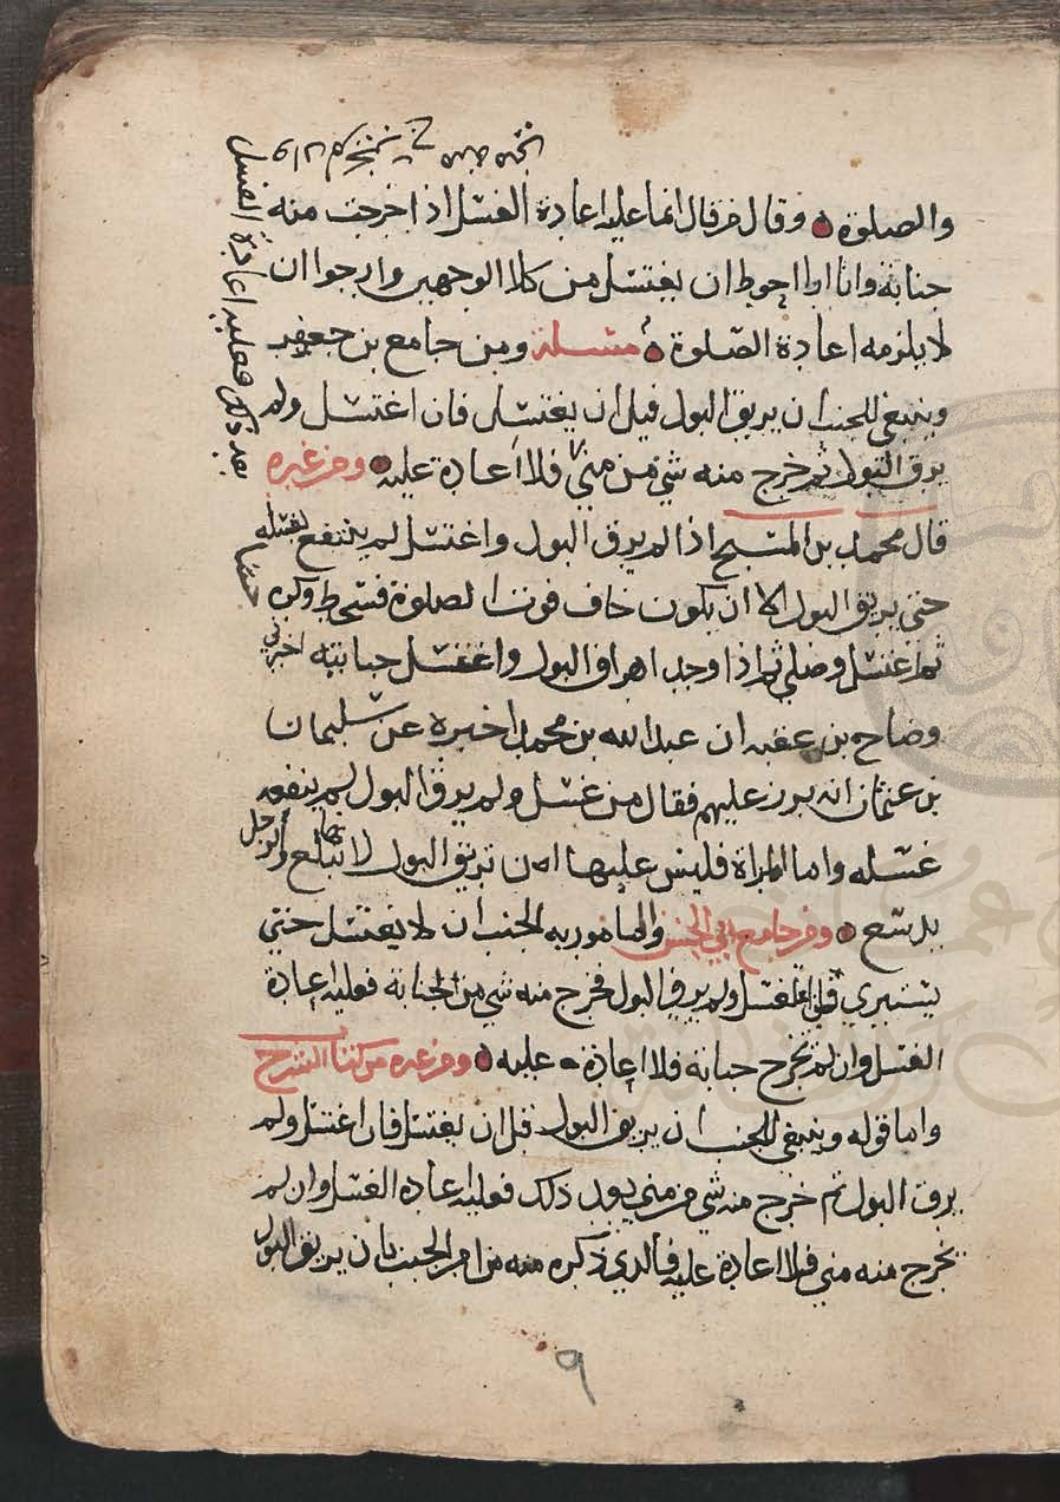 والصلوة وقال من قال انما عليه اعادة الغسل اذا خرجت منه
جنابة وانا احوط ان يغتسل من كلا الوجهين وارجوا ان
لا يلزمه اعادة الصلوة مسئلة ومن جامع بن جعفر
وينبغي للجنب ان يريق البول قبل ان يغتسل فان اغتسل ولم
يرق البول ثم خرج منه شي من مني فلا اعادة عليه ومن غيره
قال محمد بن المسبح اذا لم يرق البول واغتسل لم ينتفع بغسله
حتى يريق البول الا ان يكون خاف فوت الصلوة
ثم اغتسل وصلي ثم اذا وجد اهراق البول واغتسل جنابته اخبرني
وضاح بن عقبه ان عبد الله بن محمد اخبره عن سليمان
بن عثمان انه برز عليهم فقال من غسل ولم يرق البول لم ينفعه
غسله واما المراة فليس عليها ان تريق البول لانها تبلع والرجل
يدسع ومن جامع ابي الحسن والمامور به الجنب ان لا يغتسل حتي
يستبري فان اغتسل ولم يرق البول فخرج منه شي من الجنابة فعليه اعادة
الغسل وان لم تخرج جنابة فلا اعادة عليه ومن غيره من كتاب الشرح
واما قوله وينبغي للجنب ان يريق البول قبل ان يغتسل فان اغتسل ولم
يرق البول ثم خرج منه شي من مني بعد ذلك فعليه اعادة الغسل وان لم
يخرج منه مني فلا اعادة عليه فالذي ذكره منه من امر الجنب بان يريق البول
بعد ذلك فعليه اعادة الغسل
٩